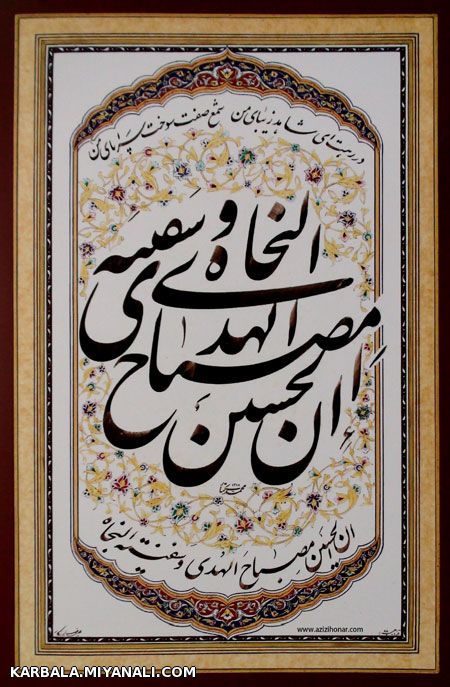 در رهت ای شاهد زیبای من شمع صفت سوخت سراپای من
ان الحسین
مصباح
الهدی
و سفینه النجاه
ان الحسین مصباح الهدی و سفینة النجاه
www.azizihonar.com
KARBALA.MIYANALI.COM